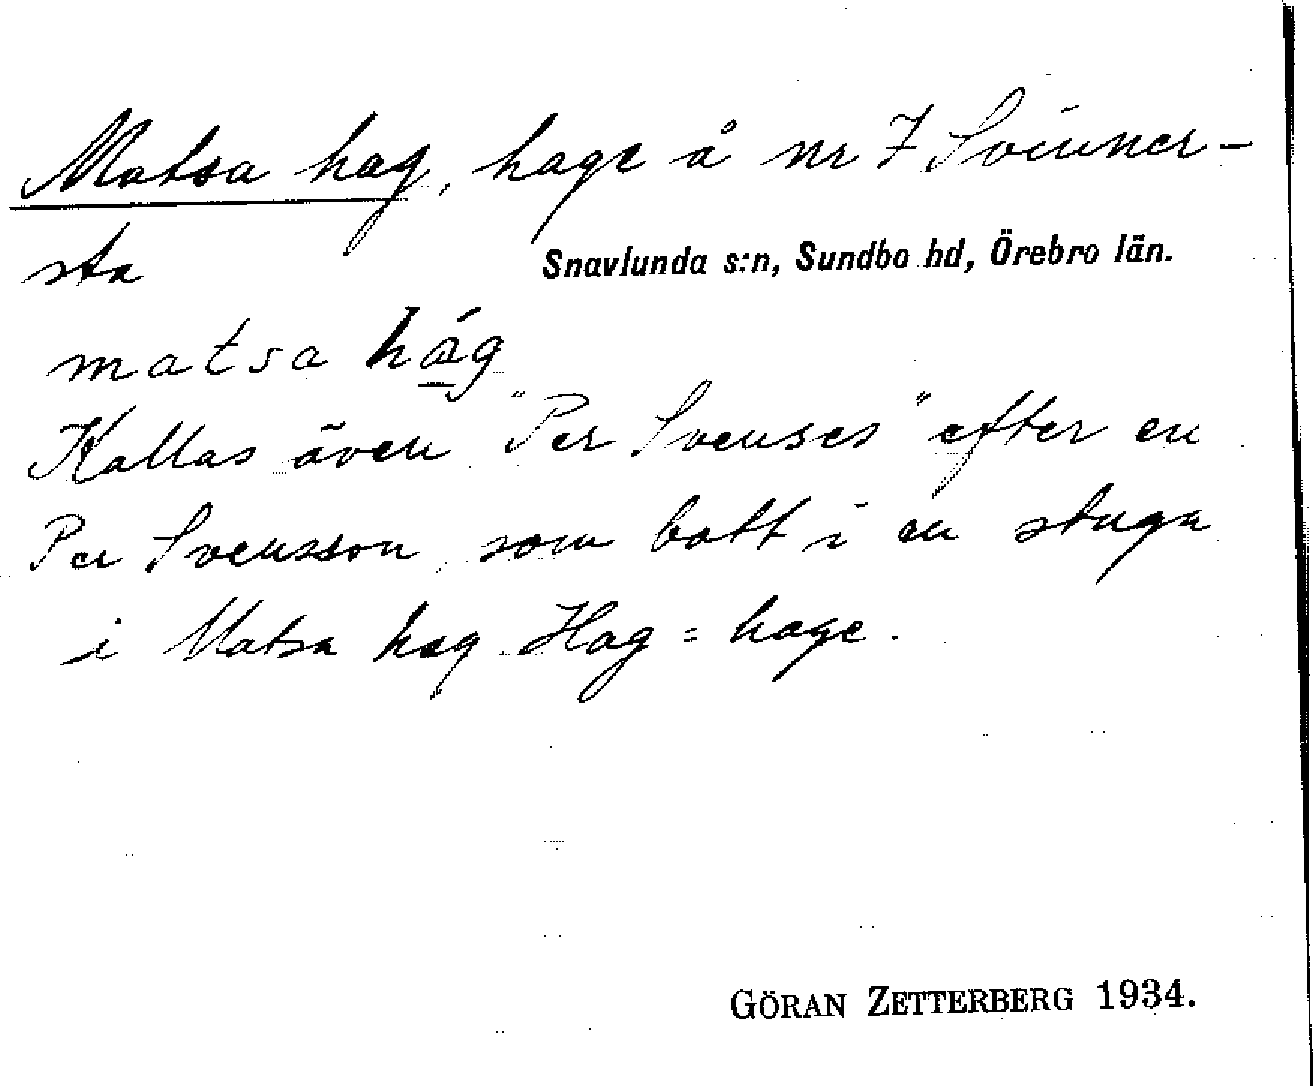 Matsa hag, hage å nr 7 Svinner-
sta
Snavlunda s:n, Sundbo hd, Örebro län.
matsa hág
Kallas även "Per Svenses" efter en
Per Svensson, som bott i en stuga
i Matsa hag. Hag = hage.
GÖRAN ZETTERBERG 1934.